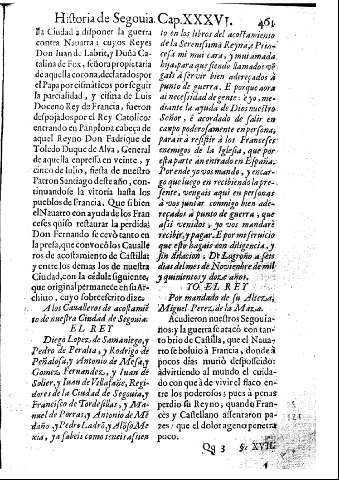 Historia de Segouia. Cap. XXXVI. 461
la Ciudad a disponer la guerra
contra Nauarra: cuyos Reyes
Don Iuan de Labrit, y Doña Ca-
talina de Fox, señora propietaria
de aquella corona, declarados por
el Papa por cismaticos por seguir
la parcialidad, y cisma de Luis
Doceno Rey de Francia, fueron
despojados por el Rey Catolico:
entrando en Panplona cabeça de
aquel Reyno Don Fadrique de
Toledo Duque de Alva, General
de aquella enpresa en veinte, y
cinco de Iulio, fiesta de nuestro
Patron Santiago deste año, con-
tinuandose la vitoria hasta los
pueblos de Francia. Que si bien
el Nauarro con ayuda de los Fran
ceses quiso restaurar la perdida;
Don Fernando se cevò tanto en
la presa, que convocò los Cavalle
ros de acostamiento de Castilla:
y entre los demas los de nuestra
Ciudad, con la cedula siguiente,
que original permanece en su Ar-
chiuo, cuyo sobrescrito dize.
A los Caualleros de acostamié
to de nuestra Ciudad de Segouia.
EL REY
Diego Lopez de Samaniego, y
Pedro de Peralta, y Rodrigo de
Peñalosa, y Antonio de Mesa, y
Gomez Fernandez, y Iuan de
Solier, y Iuan de Villafañe, Regi-
dores de la Ciudad de Segouia, y
Francisco de Tordesillas, y Ma-
nuel de Porras, y Antonio de Me
daño, y Pedro Ladrõ, y Alõso Me
xia, ya sabeis como teneis asien
to en los libros del acostamiento
de la Serenissima Reyna, e Prin-
cesa mi mui cara, y mui amada
hija, para que siendo llamados vẽ-
gais à servir bien adereçados à
punto de guerra. E porque aora
ai necessidad de gente: è yo, me-
diante la ayuda de Dios nuestro
Señor, è acordado de salir en
campo poderosamente en persona,
para ir a resistir à los Franceses
enemigos de la Iglesia, que por
esta parte àn entrado en España.
Por ende yo vos mando, y encar-
go que luego en recibiendo la pre-
sente, vengais aqui en personas
à vos juntar conmigo bien ade-
reçados à punto de guerra, que
assi venidos, yo vos mandarè
recibir, y pagar. E por mi servicio
que esto hagais con diligencia, y
sin dilacion. De Logroño a seis
dias del mes de Noviembre de mil
y quinientos y doce años.
YO EL REY
Por mandado de su Alteza,
Miguel Perez, de la Maza.
Acudieron nuestros Segouia-
nos: y la guerra se atacò con tan-
to brio de Castilla, que el Naua-
rro se bolvio à Francia, donde à
pocos dias muriò desposseido:
advirtiendo al mundo el cuida-
do con que à de vivir el flaco en-
tre los poderosos; pues à penas
perdio su Reyno, quando Fran-
ces y Castellano assentaron pa-
zes: que el dolor ageno penetra
poco.
Qq 3 §. XVII.